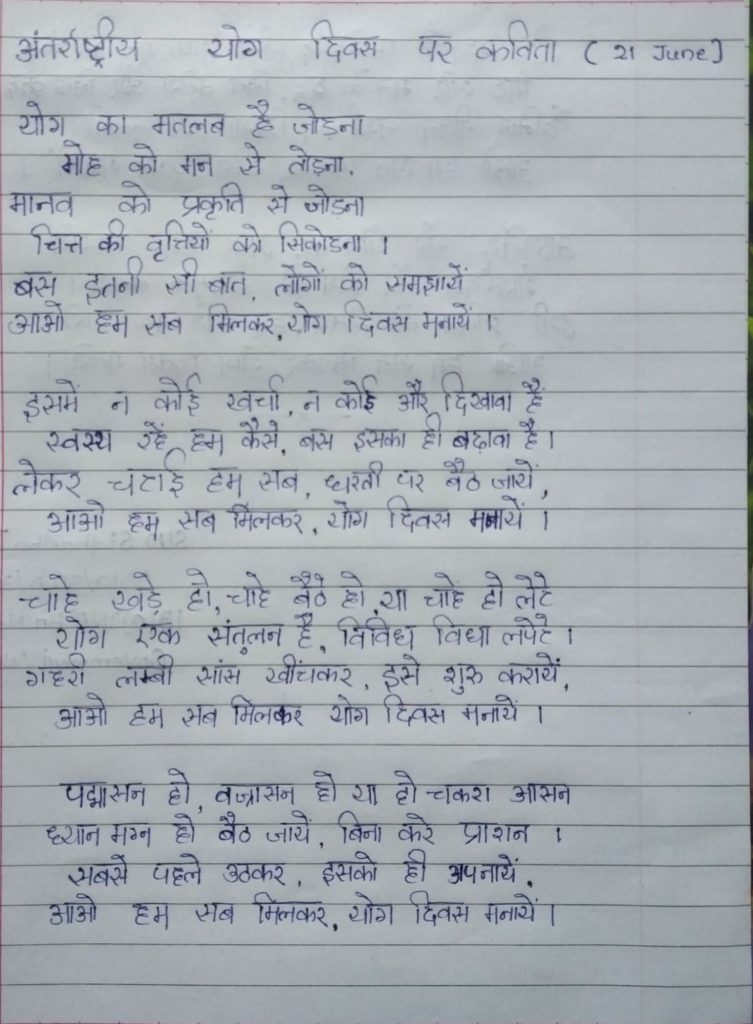 अंतर्राष्ट्रीय योग दिवस पर कविता ( 21 June )
योग का मतलब है जोड़ना
मोह को मन से तोड़ना,
मानव को प्रकृति से जोड़ना
चित्त की वृत्तियों को सिकोड़ना।
बस इतनी सी बात, लोगों को समझायें
आओ हम सब मिलकर, योग दिवस मनायें।
इसमें न कोई खर्चा, न कोई और दिखावा हैं
स्वस्थ रहें हम कैसे, बस इसका ही बढ़ावा है।
लेकर चटाई हम सब, धरती पर बैठ जायें,
आओ हम सब मिलकर, योग दिवस मनायें।
चाहे खड़े हो, चाहे बैठे हो, या चाहें हो लेटे
योग एक संतुलन है, विविध विधा लपेटे।
गहरी लम्बी सांस खींचकर, इसे शुरु करायें,
आओ हम सब मिलकर योग दिवस मनायें।
पद्मासन हो, वज्रासन हो या हो चकरा आसन
ध्यान मग्न हो बैठ जायें, बिना करे प्राशन।
सबसे पहले उठकर, इसको ही अपनायें,
आओ हम सब मिलकर, योग दिवस मनायें।